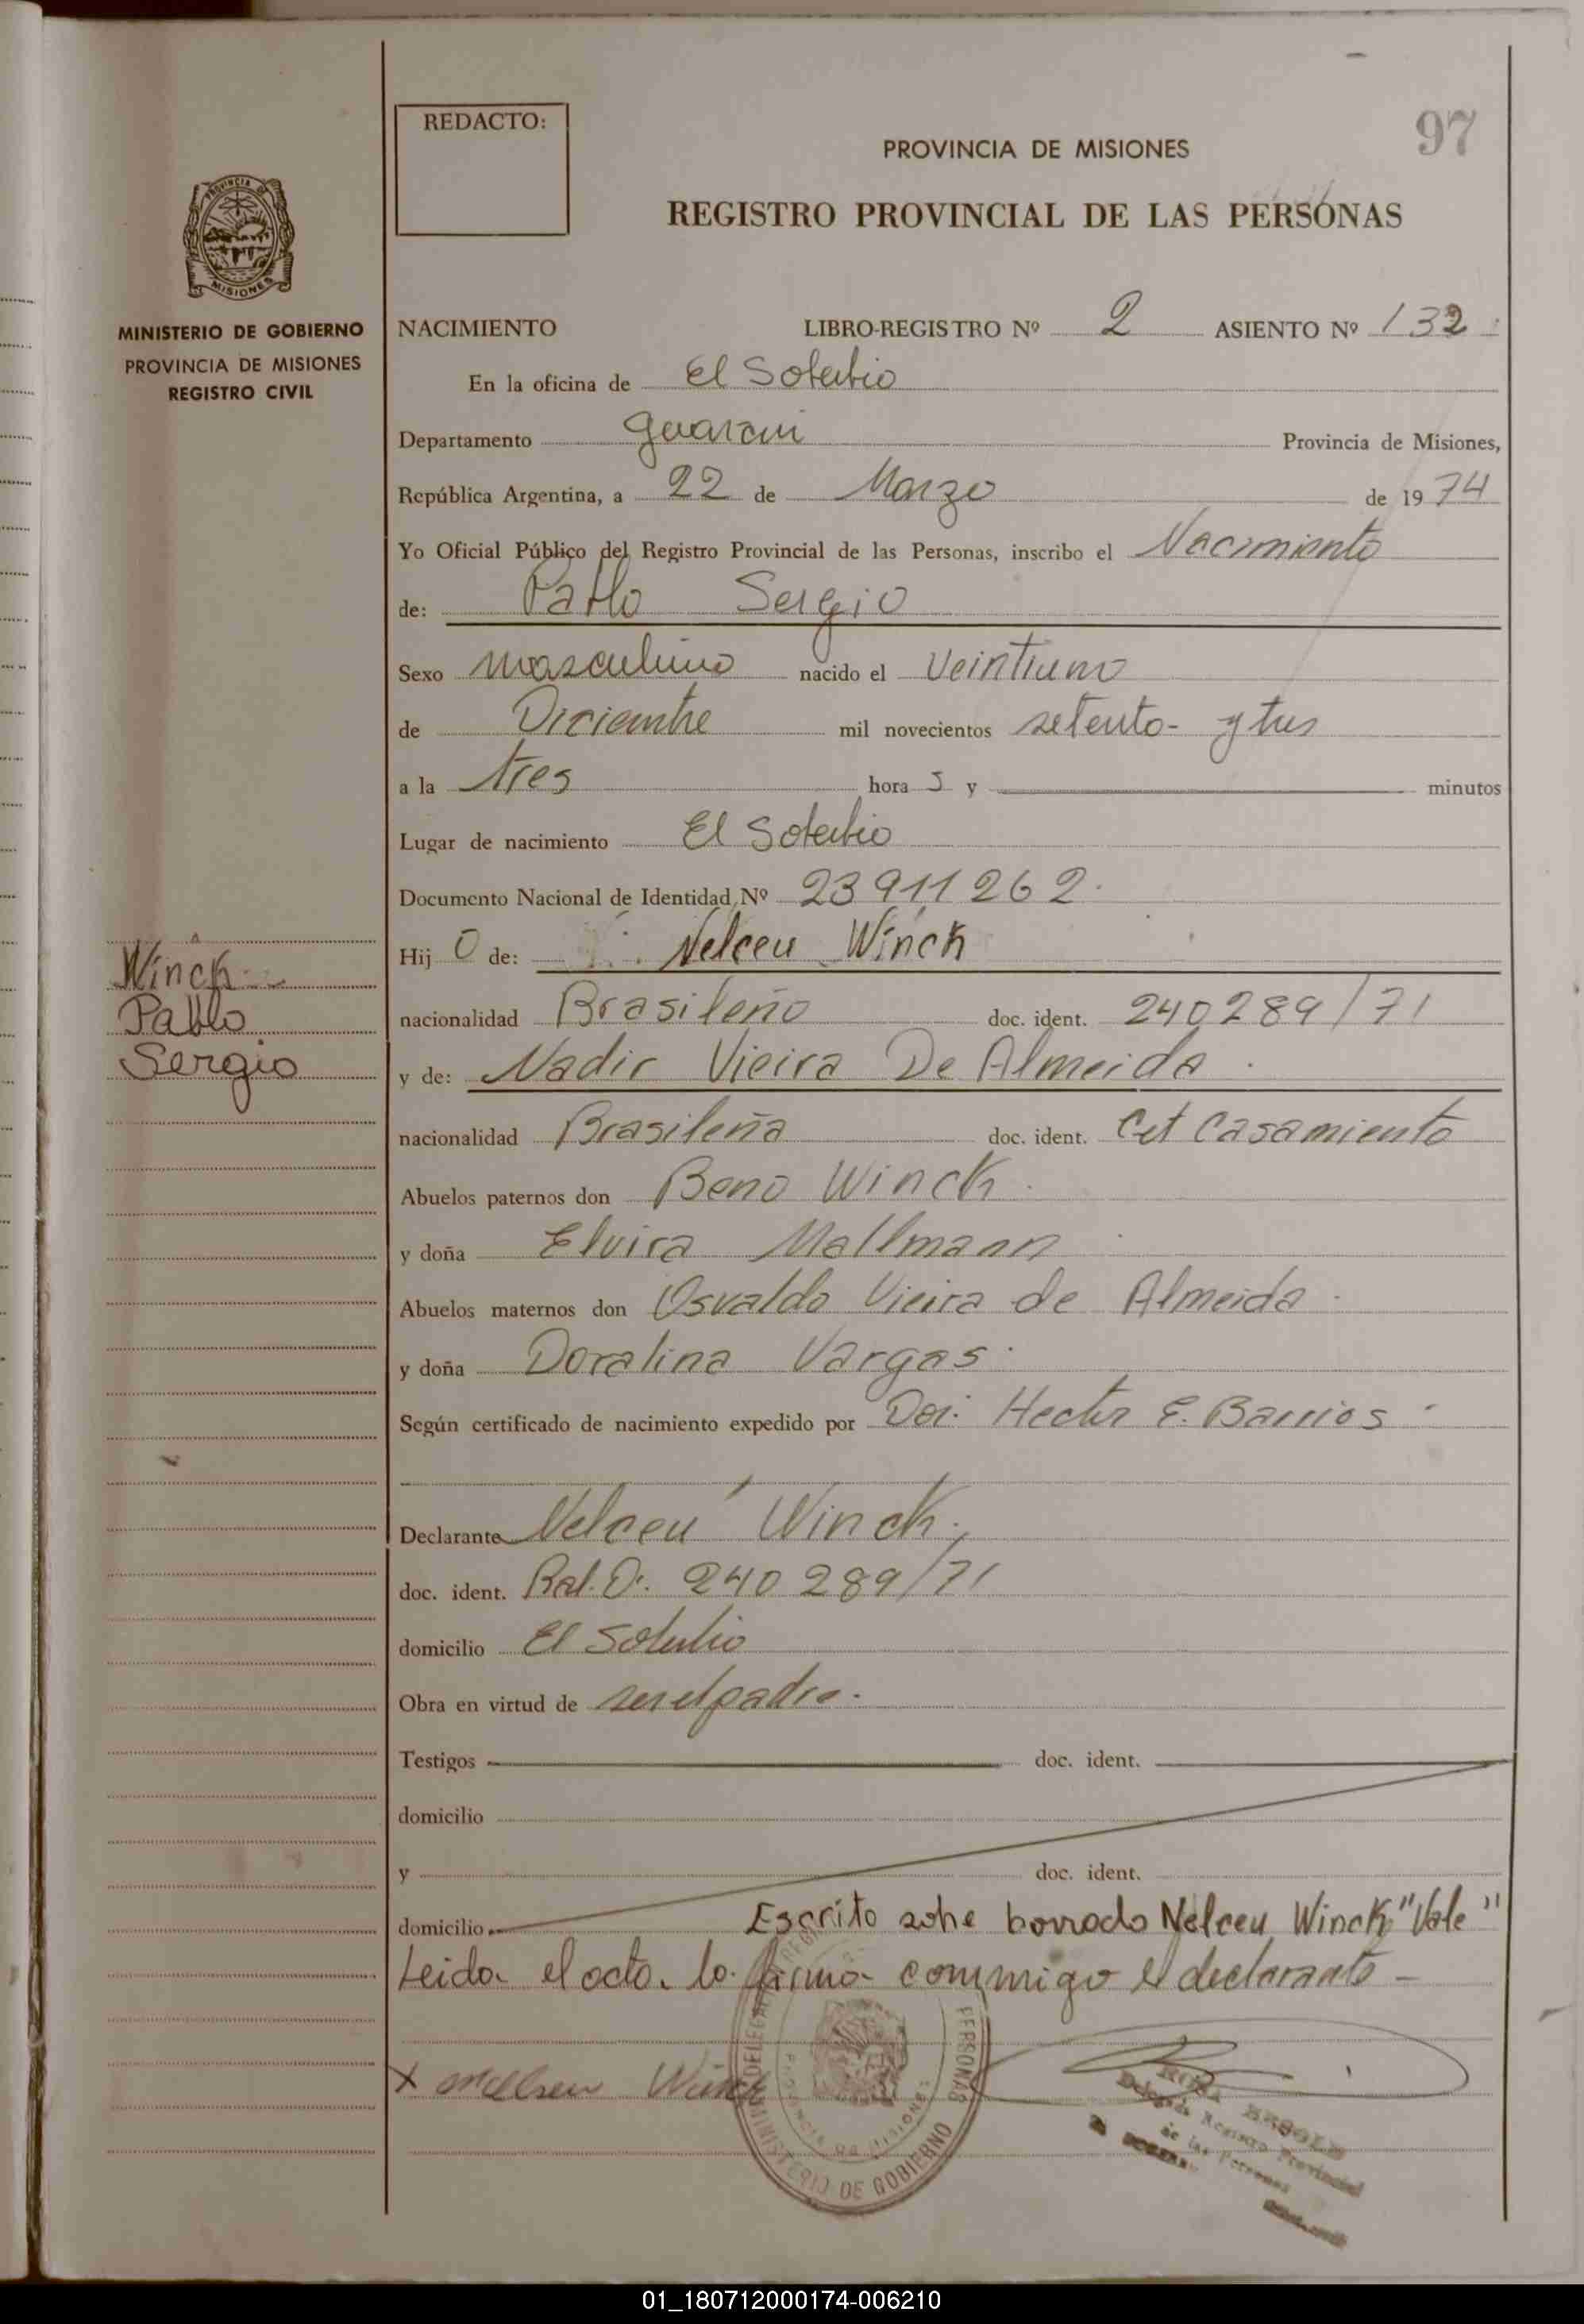 97
REDACTO:
PROVINCIA DE MISIONES
REGISTRO PROVINCIAL DE LAS PERSONAS
PROVINCIA DE
MISIONES
MINISTERIO DE GOBIERNO
PROVINCIA DE MISIONES
REGISTRO CIVIL
NACIMIENTO LIBRO-REGISTRO Nº 2 ASIENTO Nº 132
En la oficina de El Soberbio
Departamento Guarani Provincia de Misiones,
República Argentina, a 22 de Marzo de 19 74
Yo Oficial Público del Registro Provincial de las Personas, inscribo el Nacimiento
de: Pablo Sergio
Sexo masculino nacido el Veintiuno
de Diciembre mil novecientos setenta y tres
a la tres hora s y minutos
Lugar de nacimiento El Soberbio
Documento Nacional de Identidad Nº 23 911 262.
Hij o de: Nelceu Winck
Winck
Pablo
Sergio
nacionalidad Brasileño doc. ident. 240289/71
y de: Nadir Vieira De Almeida.
nacionalidad Brasileña doc. ident. Cet Casamiento
Abuelos paternos don Beno Winck.
y doña Elvira Mallmann
Abuelos maternos don Osvaldo Vieira de Almeida
y doña Doralina Vargas.
Según certificado de nacimiento expedido por Hector E. Barrios
Declarante Nelceu Winck.
doc. ident. 240 289/71
domicilio El Soberbio
Obra en virtud de ser el padre.
Testigos doc. ident.
domicilio
y doc. ident.
domicilio Escrito sobre borrado Nelceu Winck "Vale"
Leida el acta la firma conmigo el declarante
X Winck
MINISTERIO DE GOBIERNO
PERSONAS
PROVINCIA DE MISIONES
Delegada Registro Provincial
de las Personas
01_180712000174-006210